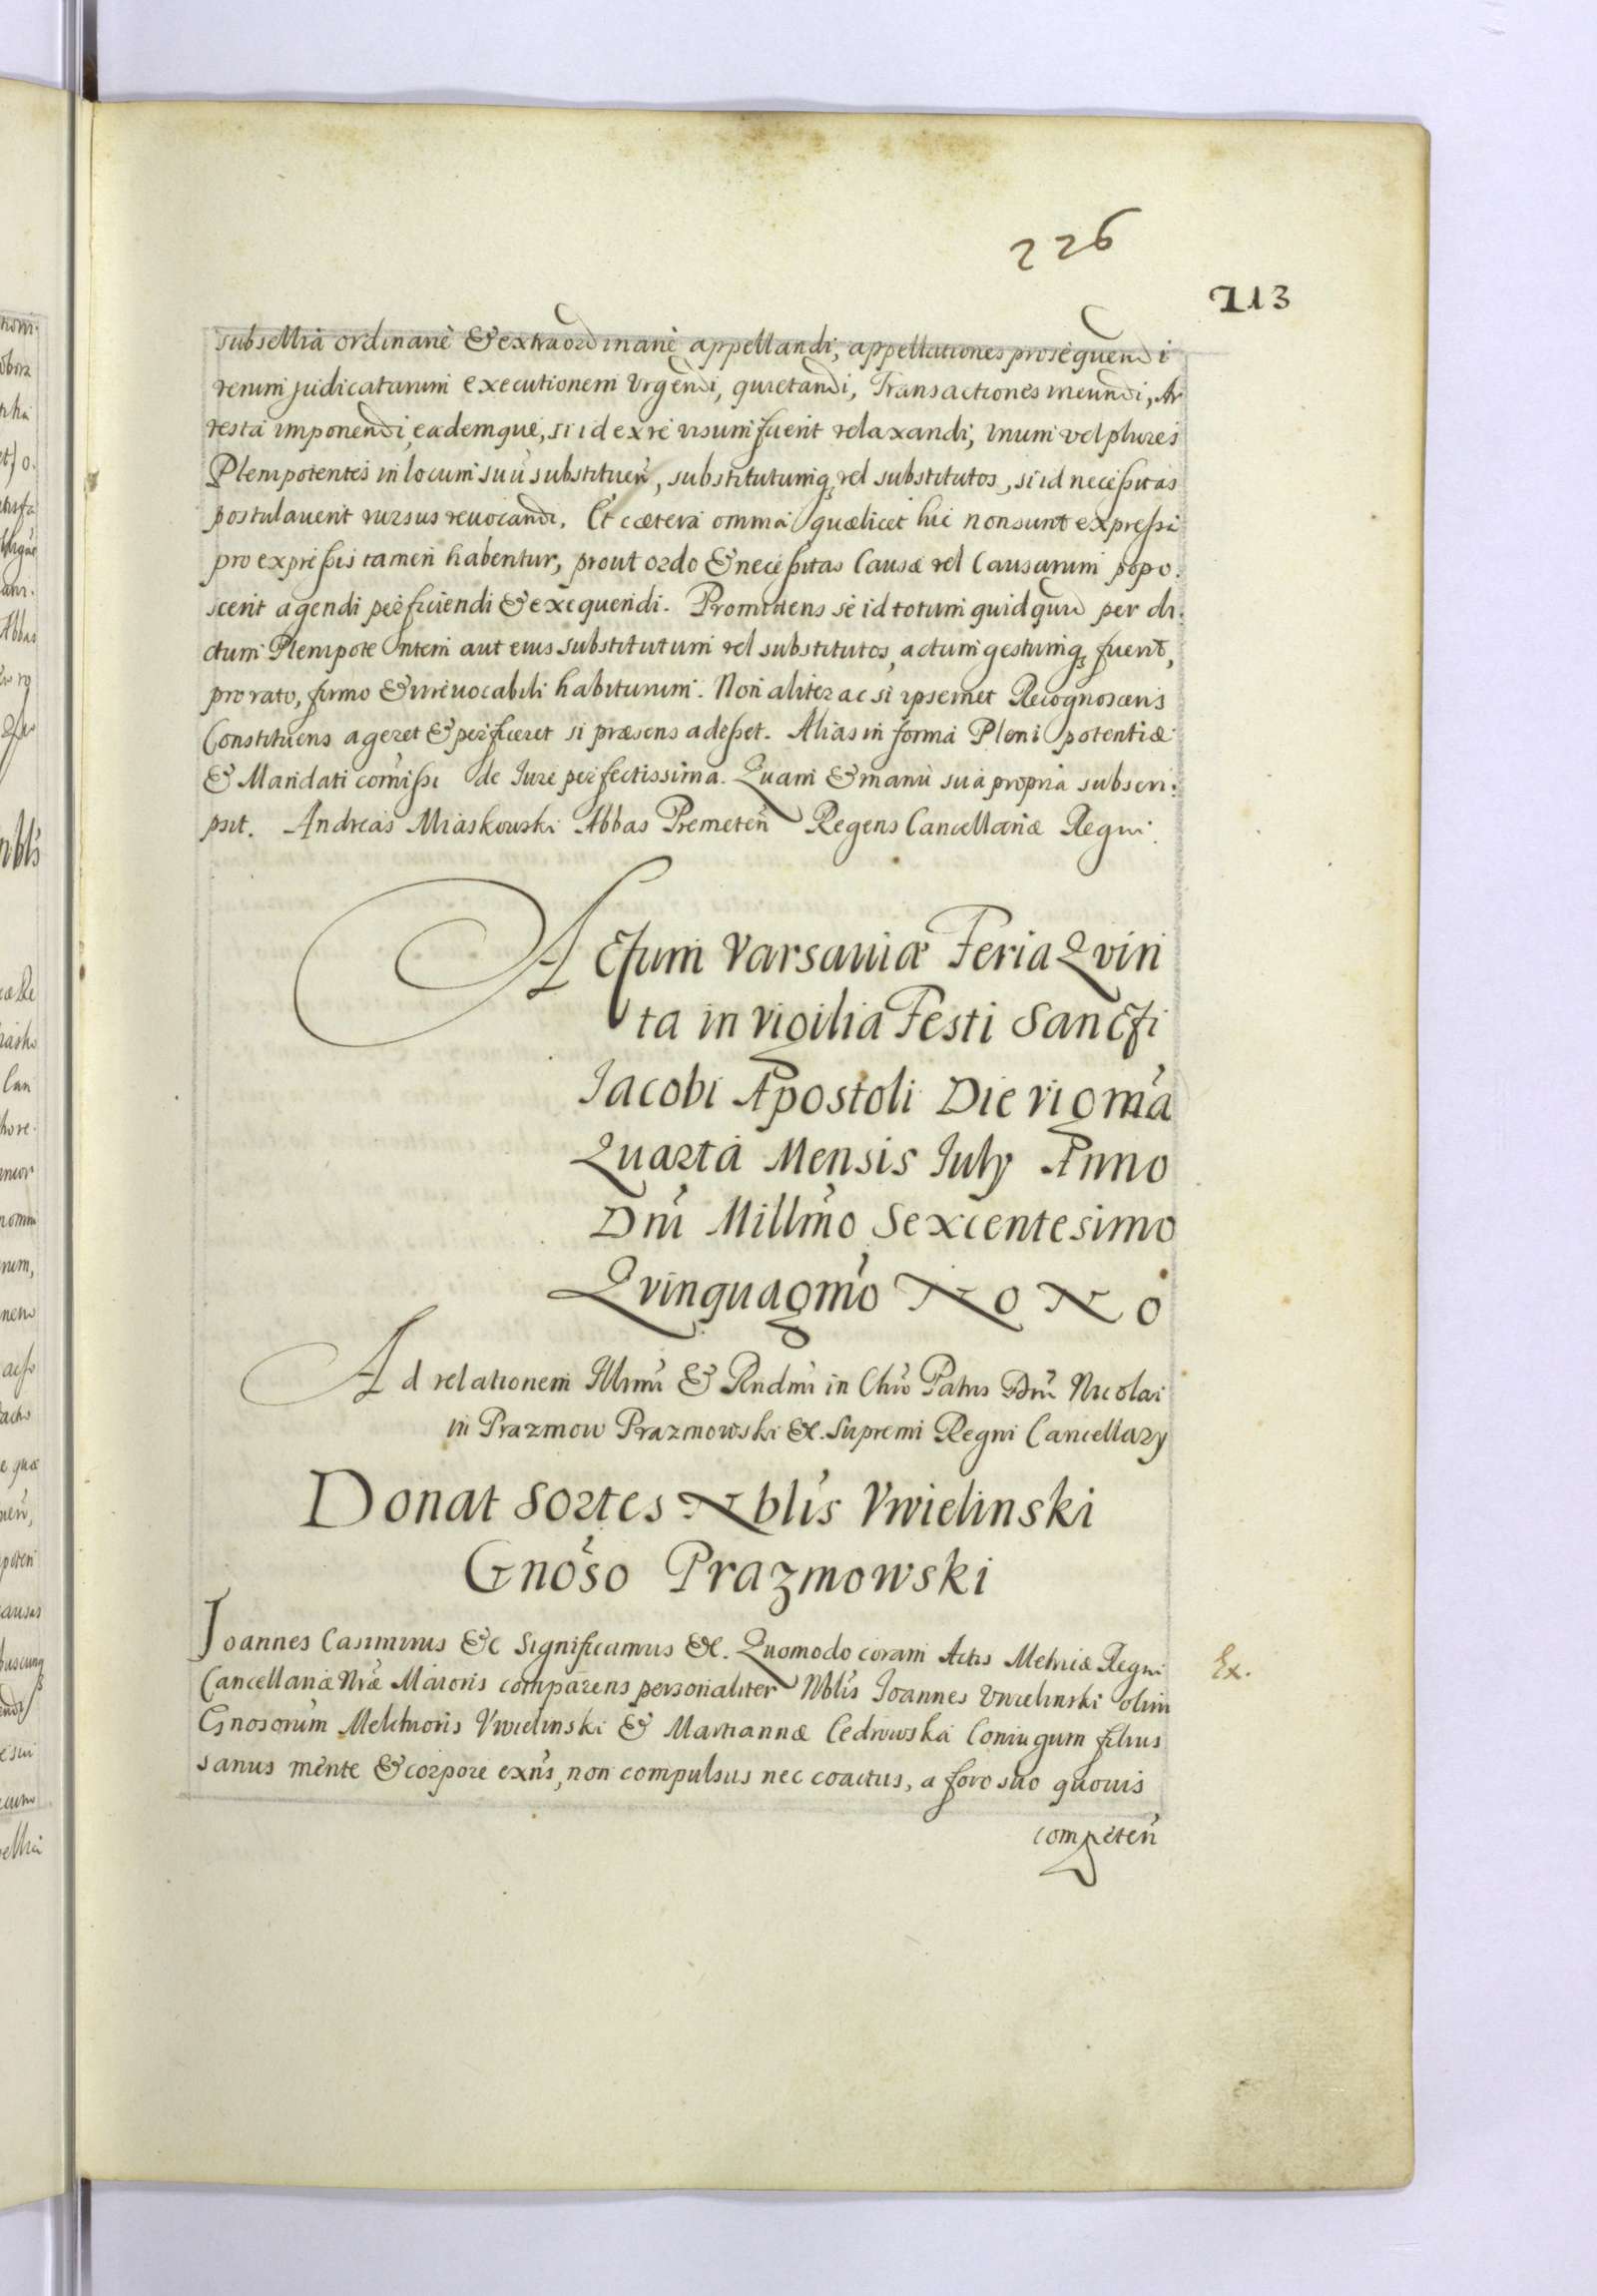 226
113
subsellia ordinarie & extraordinarie appellandi, appellationes prosequendi
rerum judicatarum executionem Vrgendi, quietandi, Transactiones ineundi, Ar
resta imponendi, eademque, si id ex re visum fuerit relaxandi, Vnum vel plures
Plenipotentes in locum suũ substituen̄, substitutumq̨ vel substitutos, si id necessitas
postulauerit rursus reuocandi. Et cætera omnia quælicet hic non sunt expressa
pro expressis tamen habentur, prout ordo & necessitas Causæ vel Causarum popo.
scerit agendi perficiendi & exequendi. Promittens se id totum quidquid per di.
ctum Plenipotentem aut eius substitutum vel substitutos, actum gestumq̨ fuerit,
pro rato, firmo & irreuocabili habiturum. Non aliter ac si ipsemet Recognoscens
Constituens ageret & perficeret si præsens adesset. Alias in forma Pleni potentiæ
& Mandati com̃issi de Jure perfectissima. Quam & manu sua propria subscri:
psit. Andreas Miaskowski Abbas Premeten̄ Regens Cancellariæ Regni.
Actum Varsauiæ Feria Qvin
ta in vigilia Festi Sancti
Jacobi Apostoli Die vigm̃a
Quarta Mensis July Anno
Dn̄i Millm̃o Sexcentesimo
Qvinquagm̃o NoNo
Ad relationem Illmi & Rndmi in Chro Patris Dn̄i Nicolai
in Prazmow Prazmowski &c. Supremi Regni Cancellary
Donat Sortes Nblis Vwielinski
Gnoso Prazmowski
Joannes Casimirus &c Significamus &c. Quomodo coram Actis Metricæ Regni
Ex.
Cancellariæ Nræ Maioris comparens personaliter Nblis Joannes Vwielinski olim
Gnosorum Melchioris Vwielinski & Mariannæ Cedrowska Coniugum filius
sanus mente & corpore exn̄s, non compulsus nec coactus, a foro suo quouis
competen̄